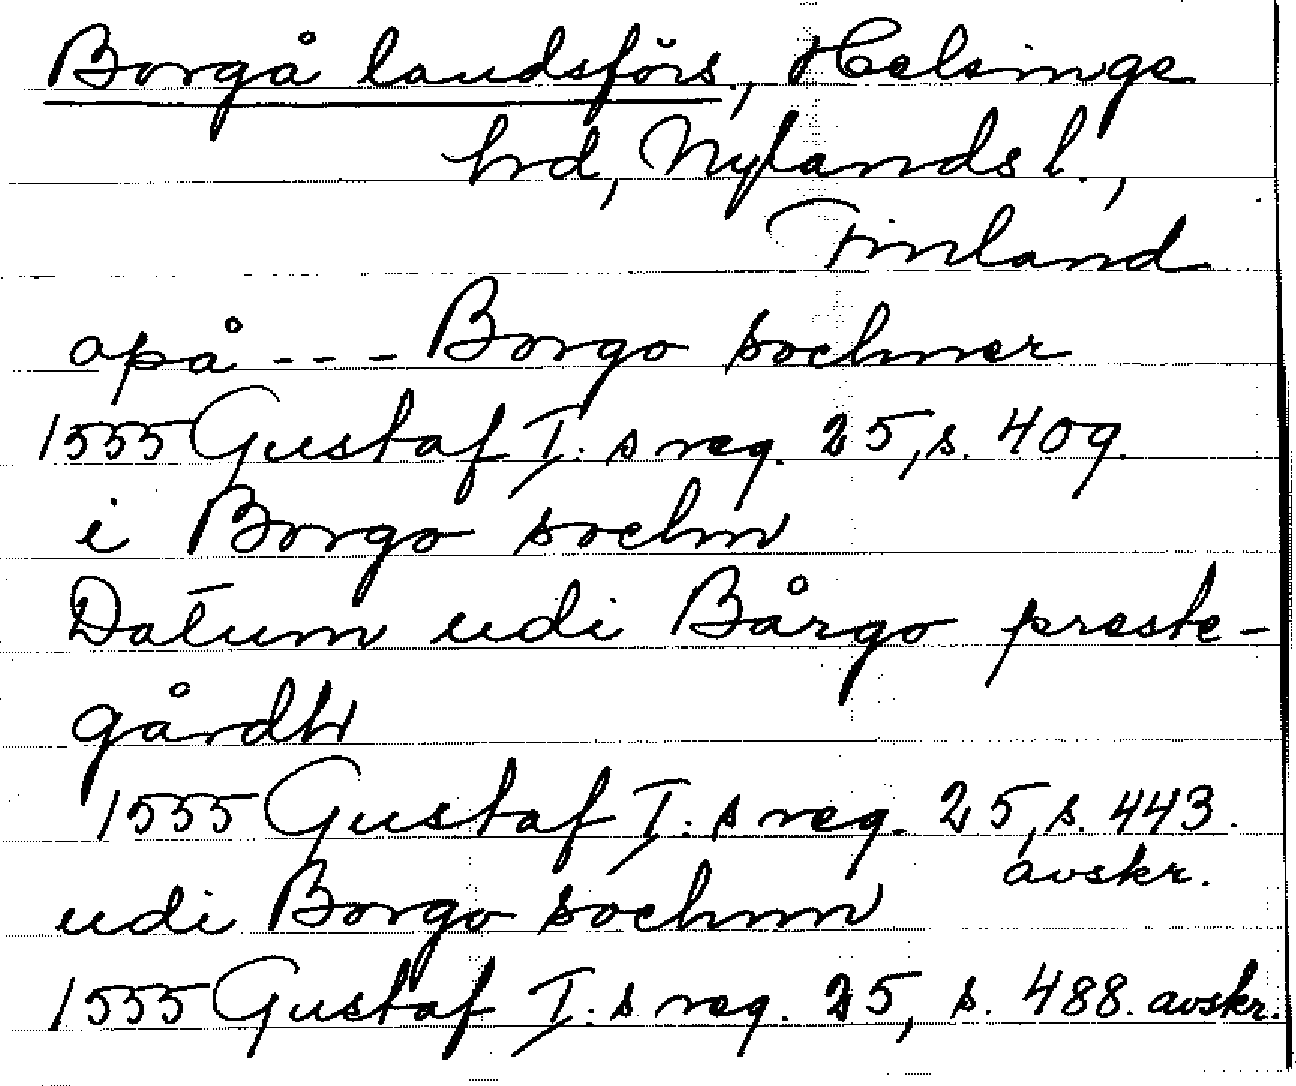 Borgå landsförs, Helsinge
hrd, Nylands l.,
Finland
opå --- Borgo sochner
1555 Gustaf I:s reg. 25, s. 409.
i Borgo sochn
Datum udi Bårgo preste-
gårdh
1555 Gustaf I:s reg. 25, s. 443.
avskr.
udi Borgo sochnn
1555 Gustaf I:s reg. 25, s. 488. avskr.